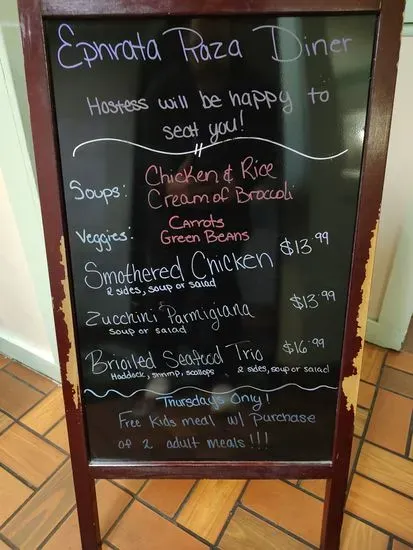 Ephrata Plaza Diner
Hostess will be happy to
seat you!
Soups: Chicken & Rice
Cream of Broccoli
Veggies: Carrots
Green Beans
Smothered Chicken $13.99
2 sides, soup or salad
Zucchini Parmigiana $13.99
soup or salad
Broiled Seafood Trio $16.99
Haddock, shrimp, scallops 2 sides, soup or salad
Thursdays Only!
Free Kids meal w/ purchase
of 2 adult meals!!!